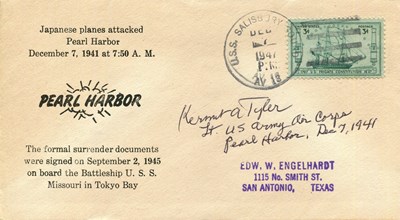 Japanese planes attacked
Pearl Harbor
December 7, 1941 at 7:50 A. M.
PEARL HARBOR
The formal surrender documents
were signed on September 2, 1945
on board the Battleship U. S. S.
Missouri in Tokyo Bay
U.S.S. SALISBURY
DEC
7
1947
P.M.
AV 13
3¢
Kermit A Tyler
Lt. US Army Air Corps
Pearl Harbor, Dec 7, 1941
EDW. W. ENGELHARDT
1115 No. SMITH ST.
SAN ANTONIO, TEXAS